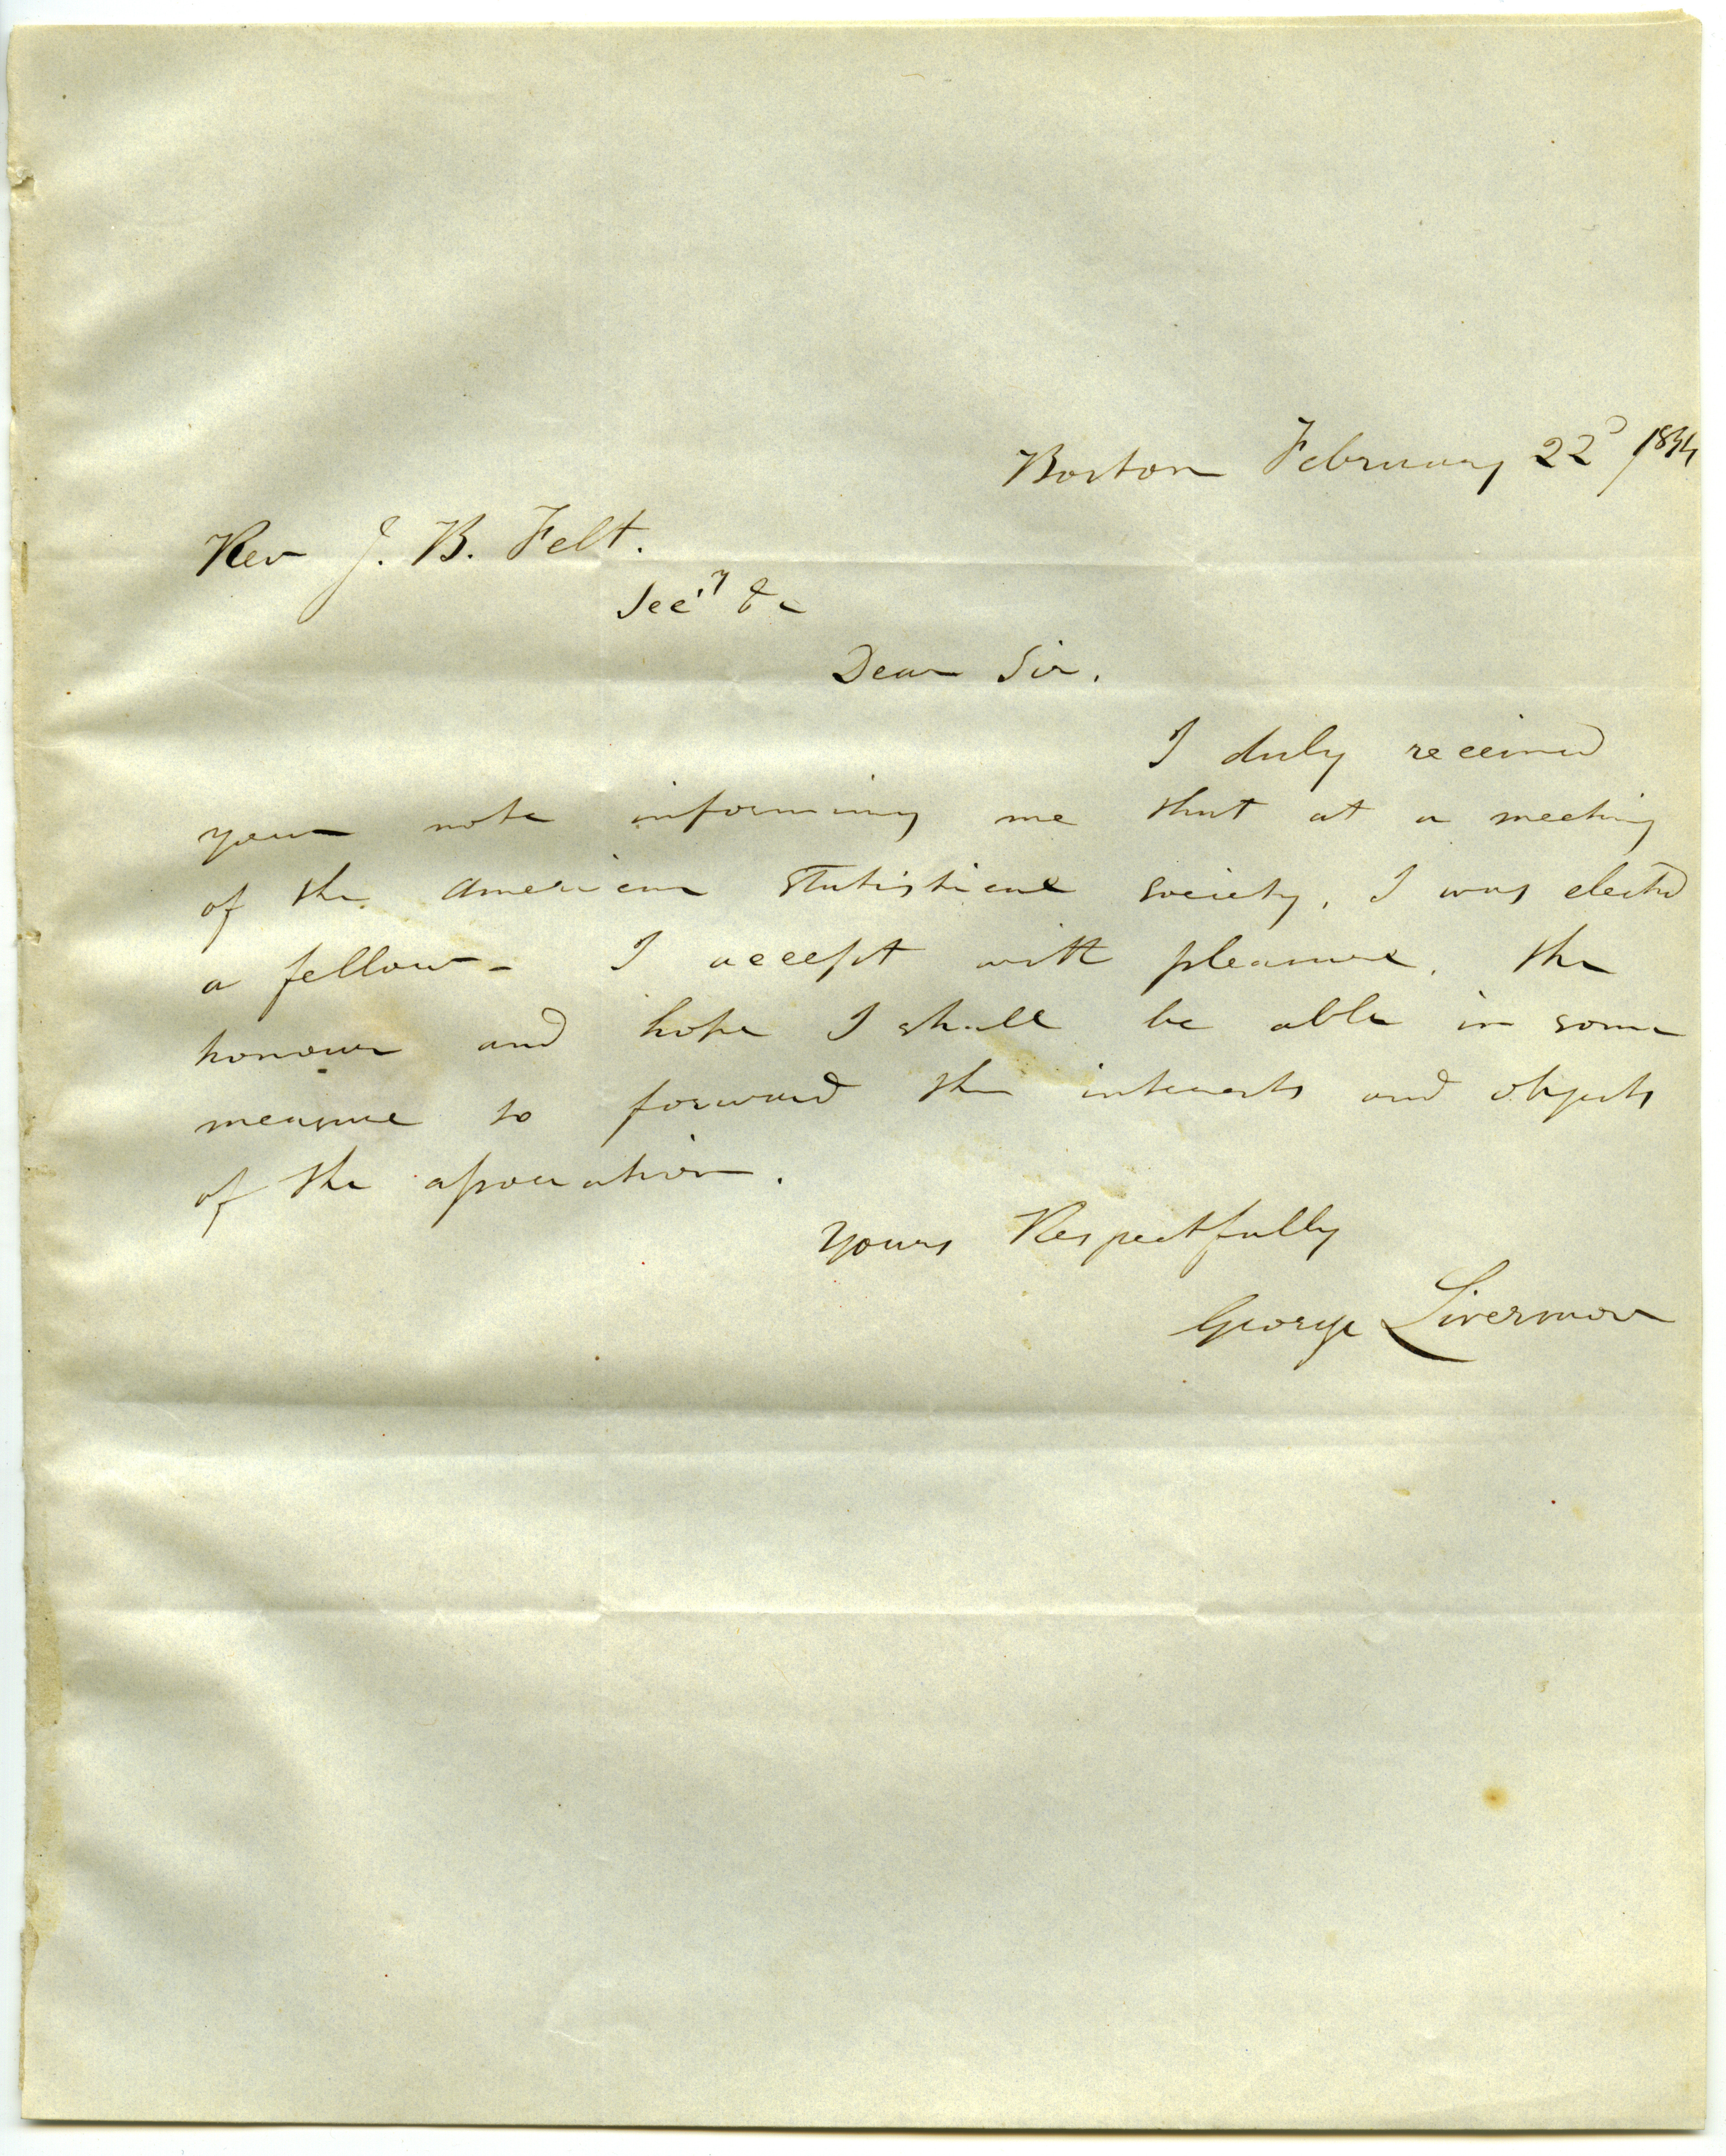 Boston February 22d 1844
Rev J. B. Felt.
Sec'y &c
Dear Sir.
I duly received
your note informing me that at a meeting
of the American Statistical Society, I was elected
a fellow - I accept with pleasure, the
honour and hope I shall be able in some
measure to forward the interests and objects
of the association.
Yours Respectfully
George Livermore